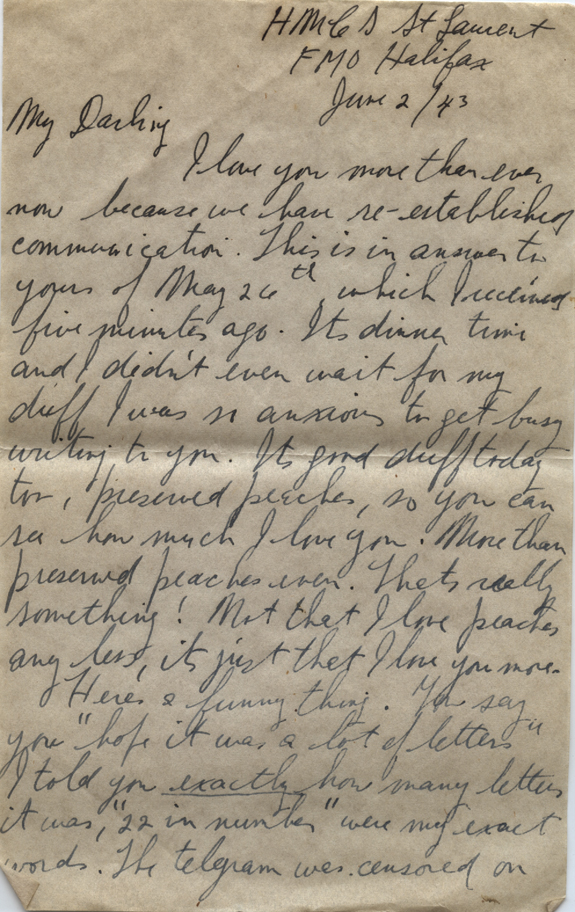 HMCS St Laurent
FMO Halifax
June 2/43
My Darling
I love you more than ever
now because we have re-established
communication. This is in answer to
yours of May 26th, which I received
five minutes ago. Its dinner time
and I didn't even wait for my
duff I was so anxious to get busy
writing to you. Its good duff today
too, preserved peaches, so you can
see how much I love you. More than
preserved peaches even. Thats really
something! Not that I love peaches
any less, it's just that I love you more.
Heres a funny thing. You say
you "hope it was a lot of letters"
I told you exactly how many letters
it was, "22 in number" were my exact
words. The telgram was censored on